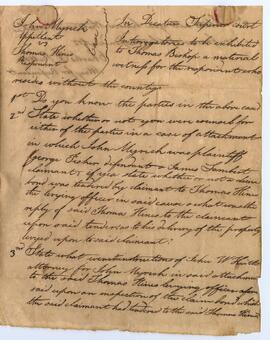 John Myrick
Appellant
vs
Thomas Hines
Respondent
In Decatur Superior court
Interrogatories to be exhibited
to Thomas Bishop a material
witness for the respondent who
resides without the county
1st Do you know the parties in the above case
2nd State whether or not you were counsel for
either of the parties in a case of attachment
in which John Myrick was plaintiff
George Fisher defendant & James
claimant, if yea state whether or not a
bond was tendered by claimant to Thomas Hines
the levying officer in said cause & what was the
reply of said Thomas Hines to the claimant
upon said tender as to his delivery of the property
levyed upon to said claimant
3rd State what were the instructions of John W
attorney for John Myrick in said attachment
to the said Thomas Hines levying officer
said upon an inspection of the claim bond which
the said claimant had tendered to the said Thomas Hines